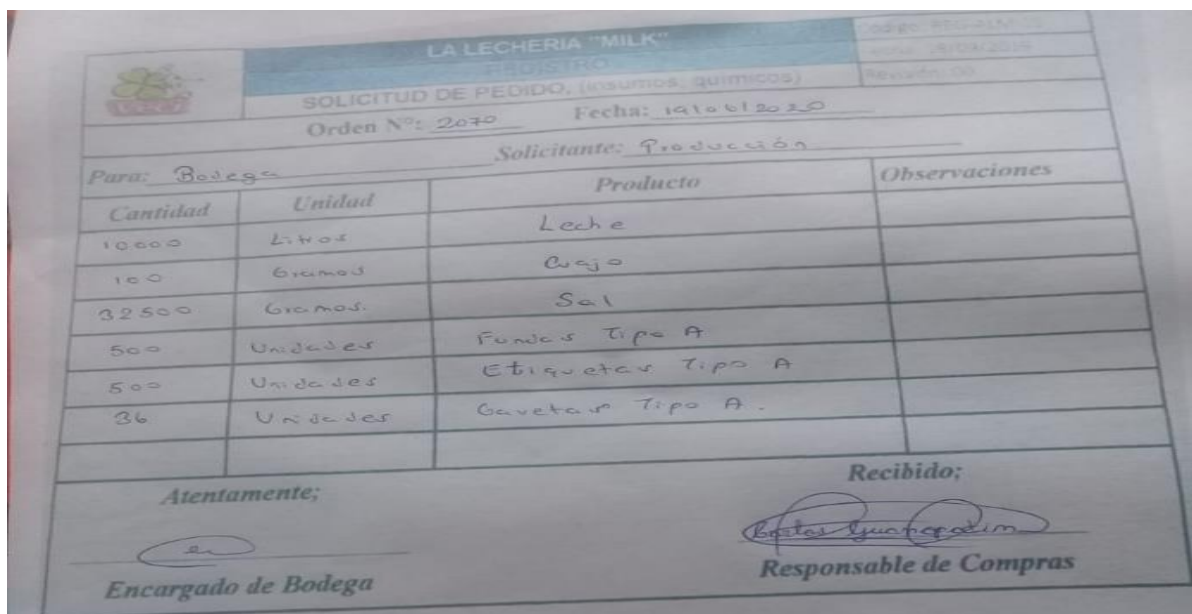 LA LECHERIA "MILK"
REGISTRO
SOLICITUD DE PEDIDO, (insumos, quimicos)
Orden N°: 2070 Fecha: 19/06/2020
Para: Bodega Solicitante: Producción
Cantidad Unidad Producto Observaciones
10000 Litros Leche
100 Gramos Cuajo
32500 Gramos. Sal
500 Unidades Fundas Tipo A
500 Unidades Etiquetas Tipo A
36 Unidades Gavetas Tipo A.
Atentamente; Recibido;
Encargado de Bodega Responsable de Compras